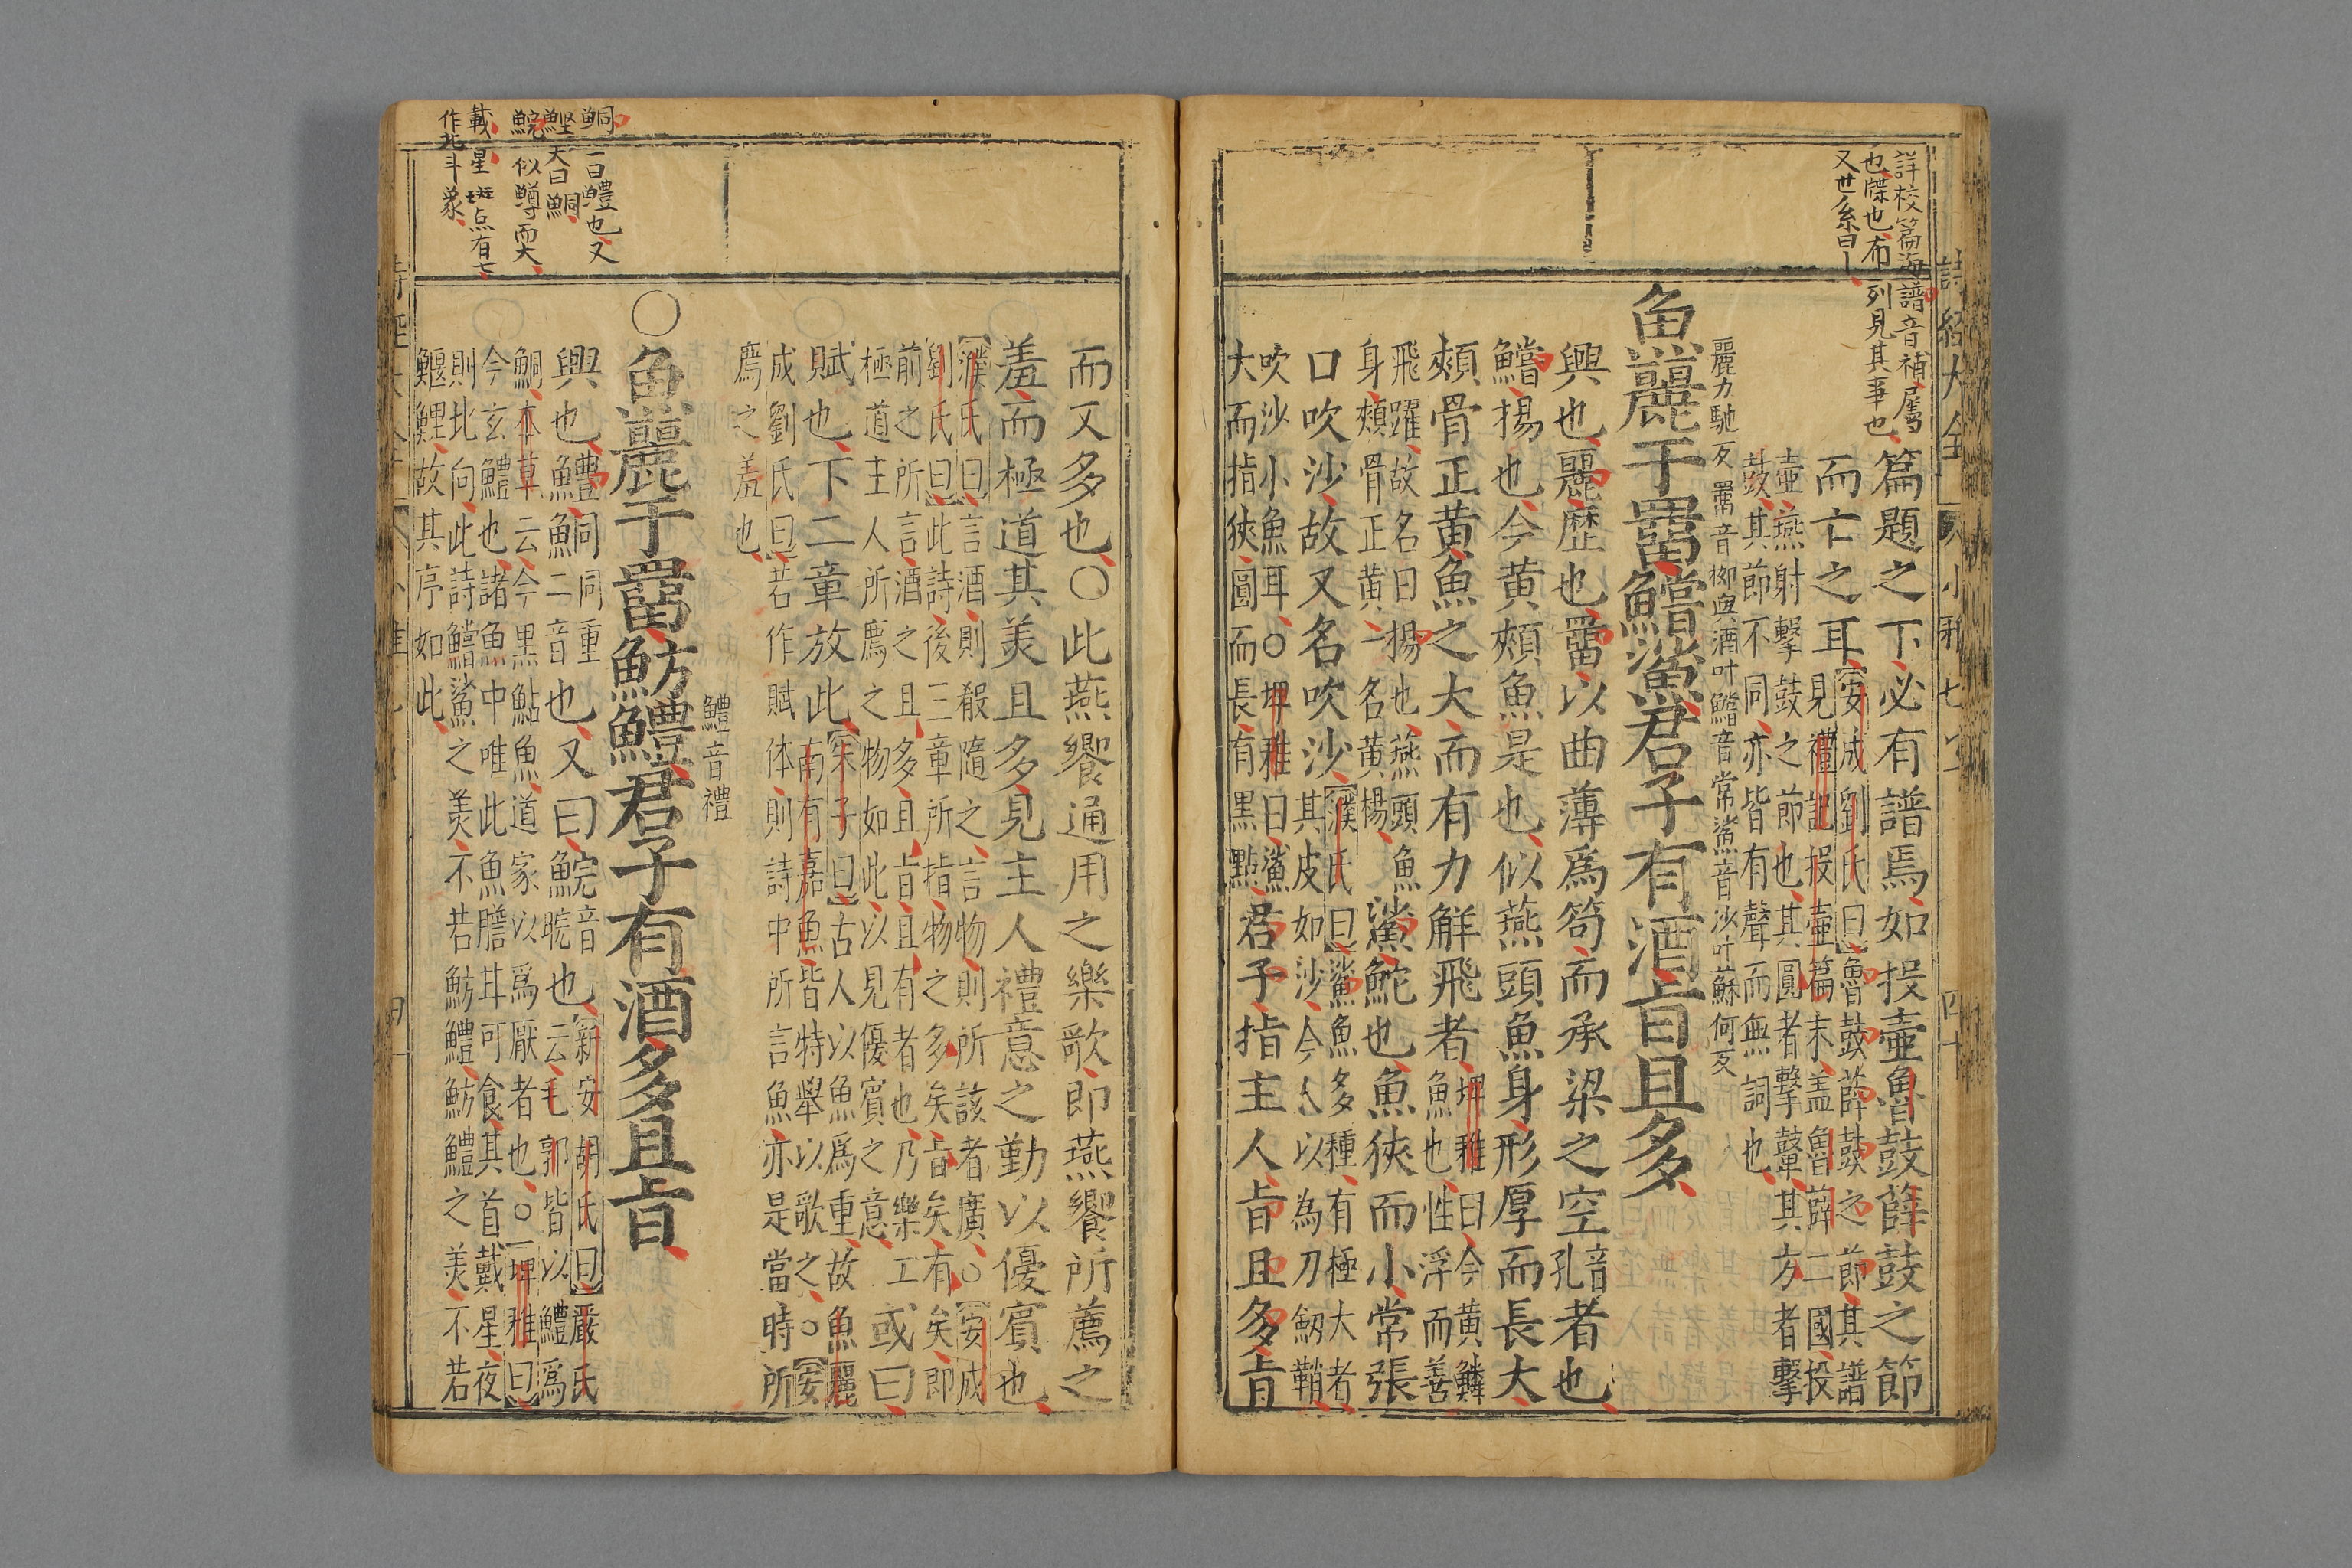 詳校篇海譜音補屬
也牒也布列見其事也
又世系曰
篇題之下必有譜焉如投壺魯鼓薛鼓之節
而亡之耳安成劉氏曰魯鼓薛鼓之節其譜
見禮記投壺篇末盖魯薛二國投
壺燕射擊鼓之節也其圓者擊鼙其方者擊
鼓其節不同亦皆有聲而無詞也
麗力馳反罶音栁與酒叶鱨音常鯊音沙叶蘇何反
魚麗于罶鱨鯊君子有酒旨且多
興也麗歷也罶以曲薄爲笱而承梁之空音孔者也
鱨揚也今黄頰魚是也似燕頭魚身形厚而長大
頰骨正黄魚之大而有力觧飛者埤雅曰今黄鱨
魚也性浮而善
飛躍故名曰揚也燕頭魚
身頰骨正黄一名黄楊
鯊鮀也魚狹而小常張
口吹沙故又名吹沙濮氏曰鯊魚多種有極大者
其皮如沙今人以為刀劒鞘
吹沙小魚耳○埤雅曰鯊
大而指狹圓而長有黒點
君子指主人旨且多旨
而又多也○此燕饗通用之樂歌即燕饗所薦之
羞而極道其美且多見主人禮意之勤以優賓也
濮氏曰言酒則殽隨之言物則所該者廣○安成
劉氏曰此詩後三章所指物之多矣旨矣有矣即
前之所言酒之且多且旨且有者也乃樂工
極道主人所薦之物如此以見優賓之意
或曰
賦也下二章放此朱子曰古人以魚爲重故魚麗
南有嘉魚皆特舉以歌之○安
成劉氏曰若作賦体則詩中所言魚亦是當時所
薦之羞也
鱧音禮
○魚麗于罶魴鱧君子有酒多且旨
興也鱧鮦同音重也又曰鯇音睆也新安胡氏曰嚴氏
云毛郭皆以鱧爲
鮦本草云今黒鮎魚道家以爲厭者也○埤雅曰
今玄鱧也諸魚中唯此魚膽耳可食其首戴星夜
則北向此詩鱨鯊之美不若魴鱧魴鱧之美不若
鰋鯉故其序如此
鮦 一曰鱧也又
鰹 大曰鮦
鯇 似鱒而大
載星 斑点有七
作北斗象